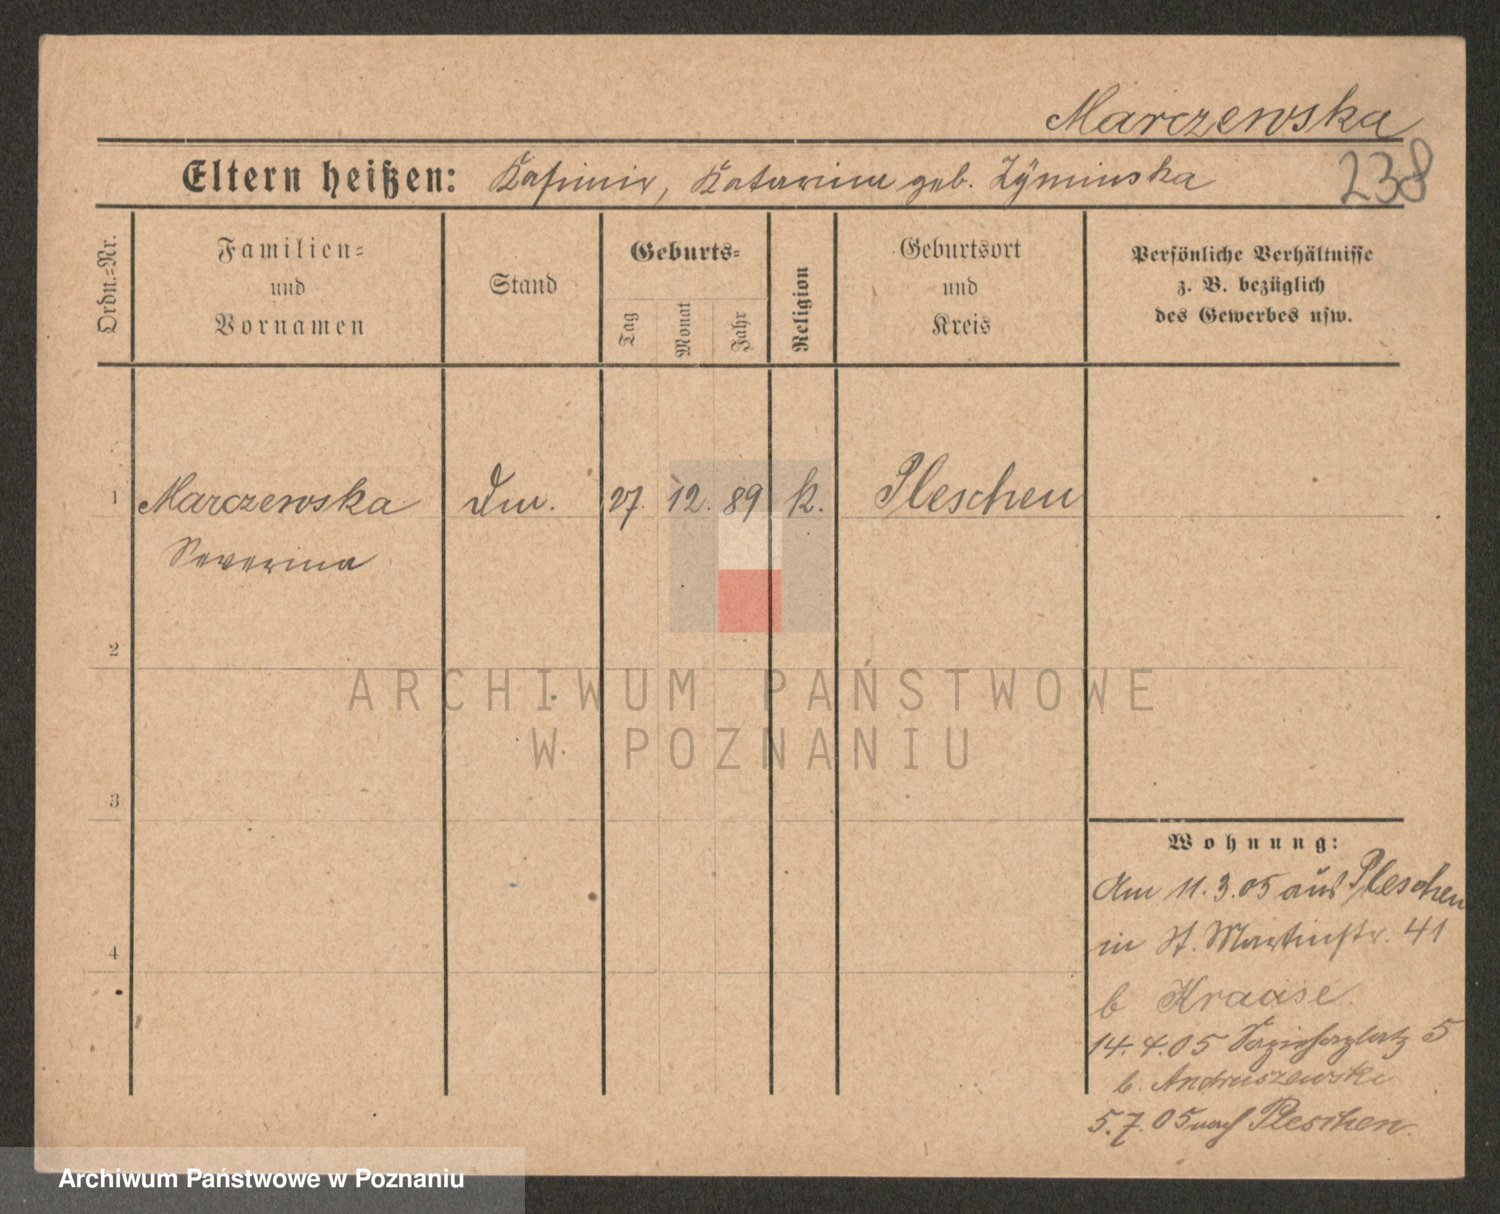 Marczewska
Eltern heißen: Kasimir, Katarina geb. Zyminska
238
Ordn.=Nr.
Familien=
und
Vornamen
Stand
Geburts=
Tag
Monat
Jahr
Religion
Geburtsort
und
Kreis
Persönliche Verhältnisse
z. B. bezüglich
des Gewerbes usw.
1 Marczewska 27. 12. 89 k. Pleschen
Severina
2
ARCHIWUM PAŃSTWOWE
W POZNANIU
3
Wohnung:
Am 11.3.05 aus Pleschen
in St. Martinstr. 41
b Kraase.
4
14.4.05 Sapiehaplatz 5
b. Andruszewski
5.7.05 nach Pleschen.
Archiwum Państwowe w Poznaniu